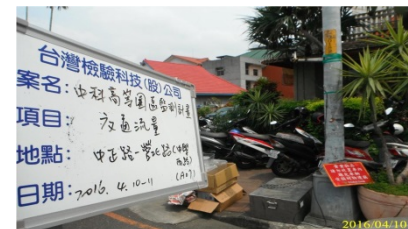 台灣檢驗科技(股)公司
案名:中科高等園區監測計畫
項目: 交通流量
地點: 中正路-營北路(中興
(A17)
日期:2016. 4. 10-11
2016/04/10